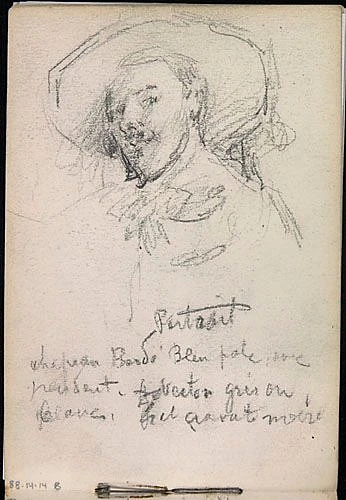 Portrait
chapeau Bordé Bleu pale, avec
pendent. veston gris ou
blanc, cravate noire
88-14-14 B